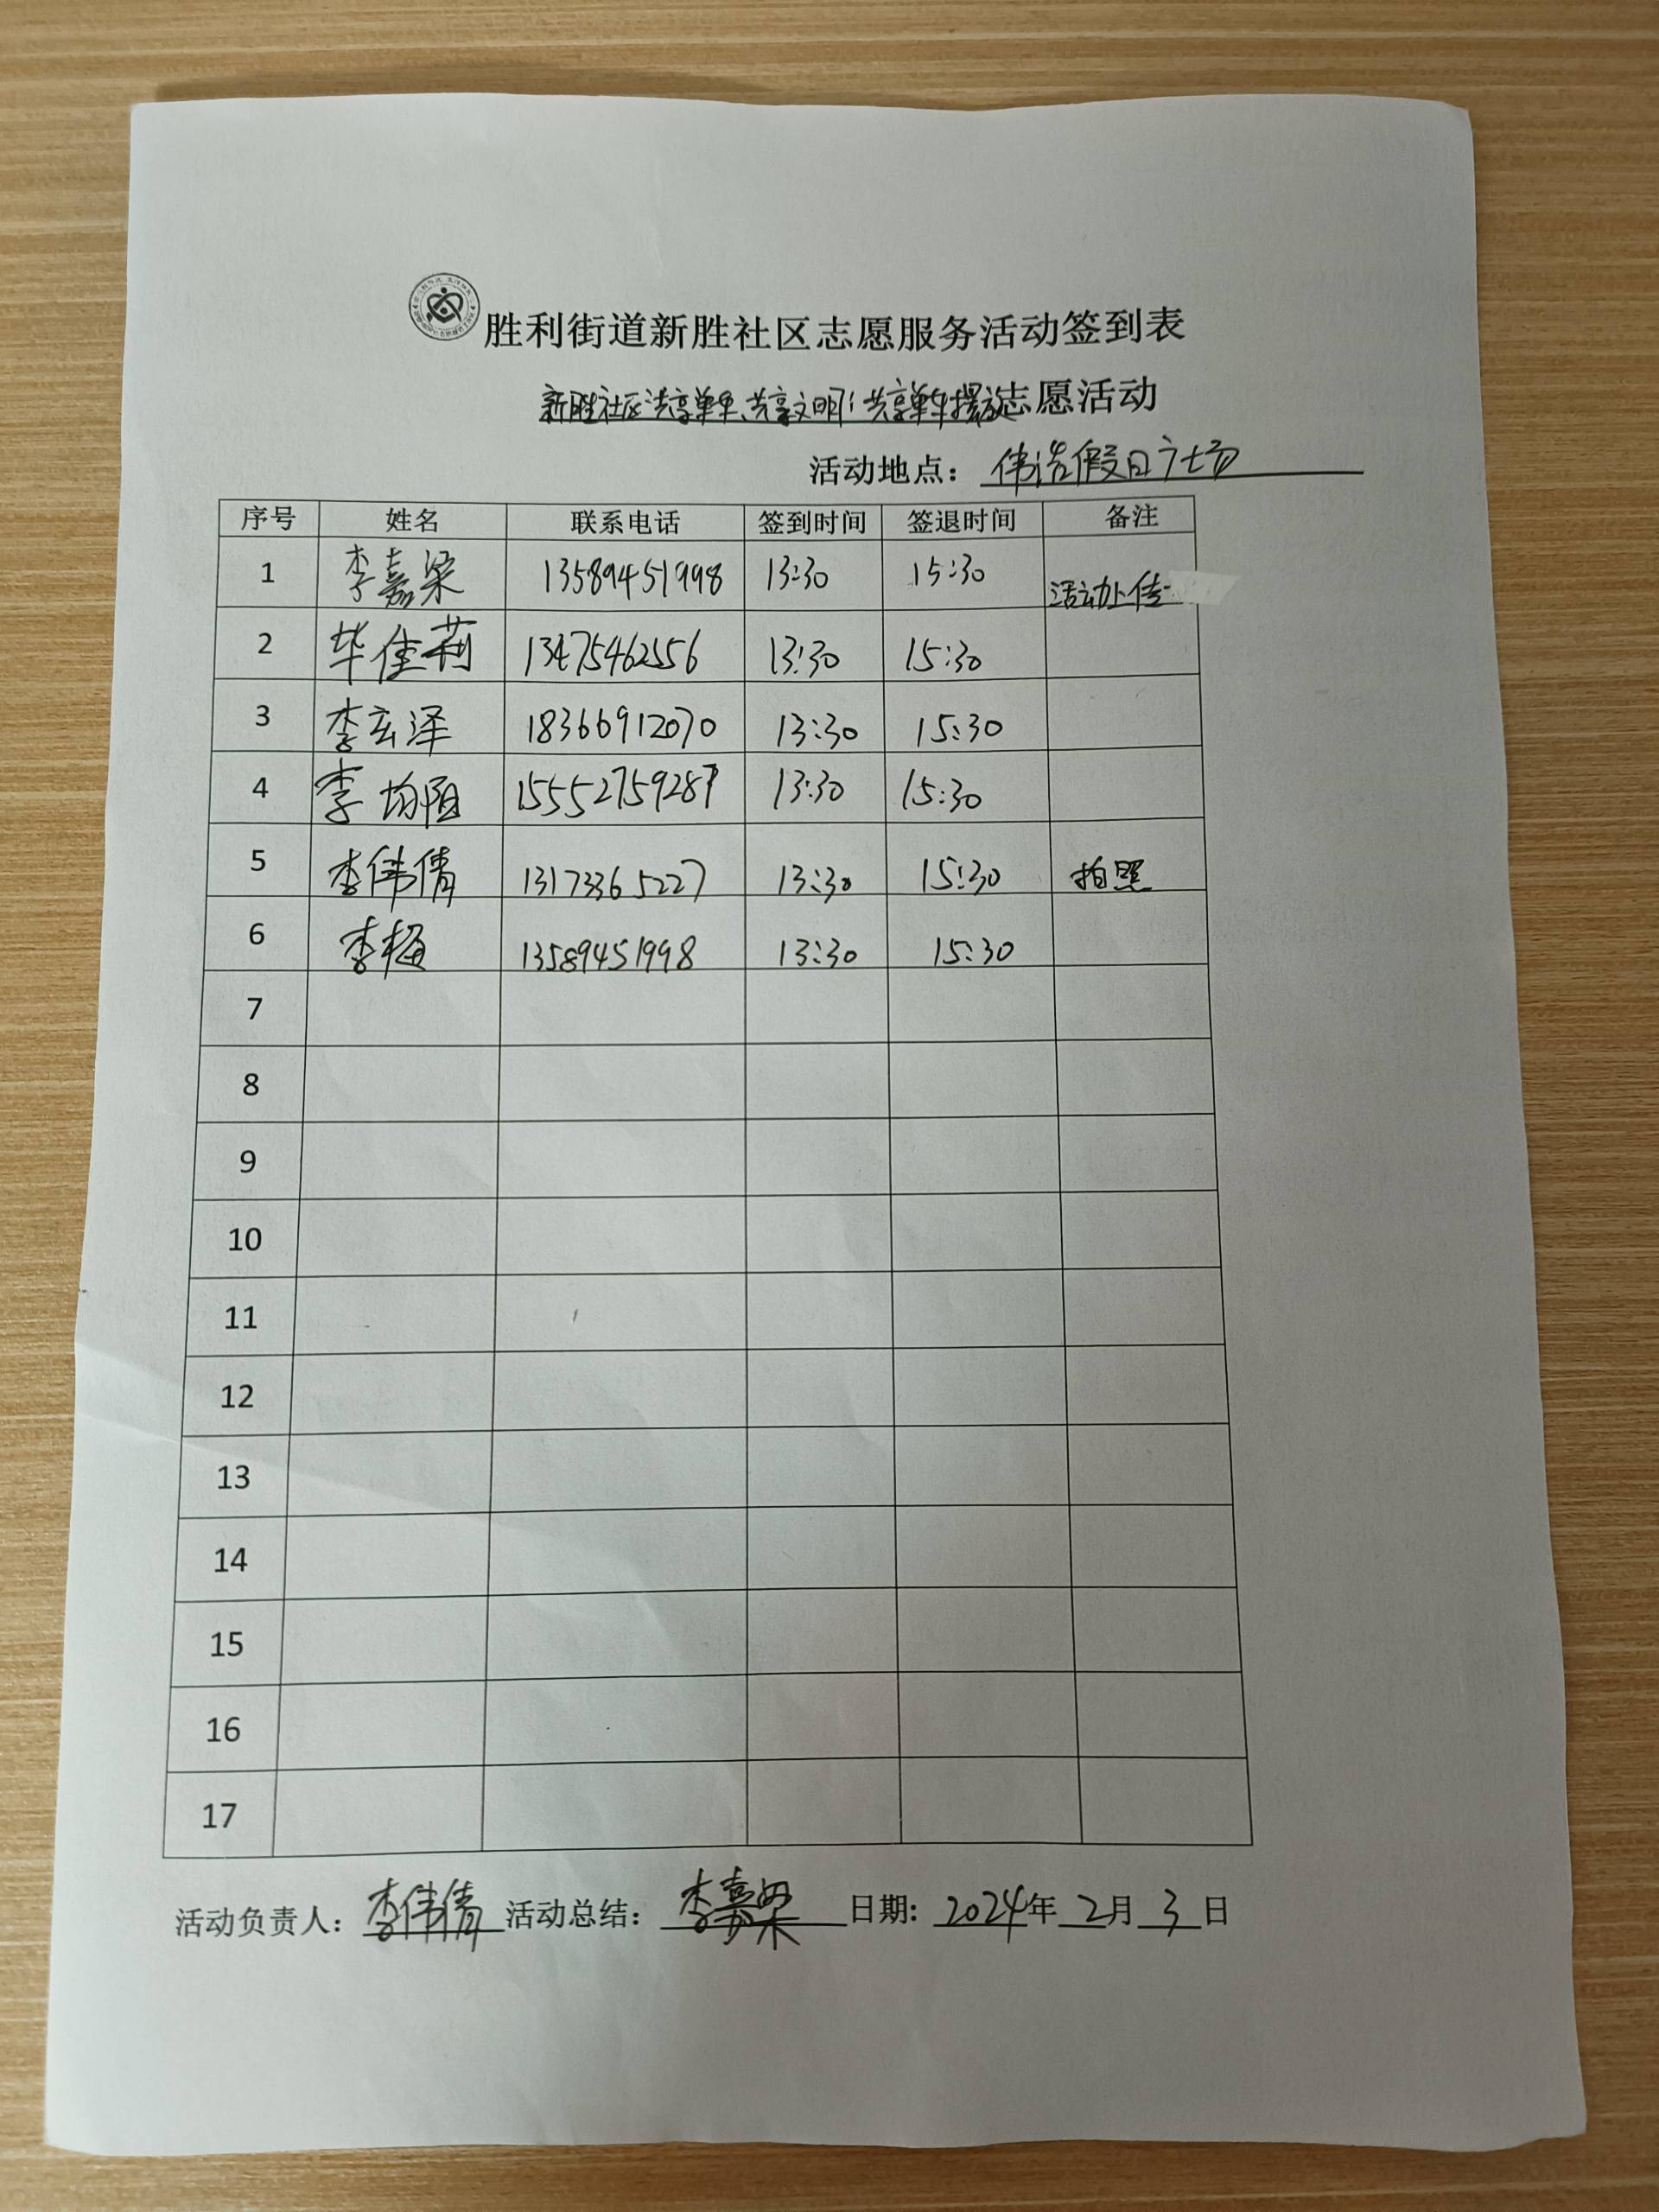 胜利街道新胜社区志愿服务活动签到表
新胜社区共享单车、共享文明！共享单车摆放志愿活动
活动地点：伟浩假日广场
序号 姓名 联系电话 签到时间 签退时间 备注
1 李嘉梁 13589451998 13:30 15:30 活动上传
2 毕佳莉 13475462556 13:30 15:30
3 李玄泽 18366912070 13:30 15:30
4 李均阳 15552759287 13:30 15:30
5 李伟倩 13173365227 13:30 15:30 拍照
6 李梅 13589451998 13:30 15:30
7
8
9
10
11
12
13
14
15
16
17
活动负责人：李伟倩 活动总结：李嘉梁 日期: 2024年2月3日